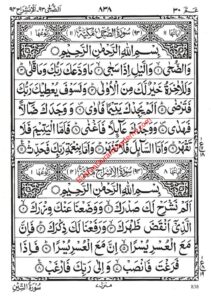 عم ٣٠
٨٣٨
سُوْرَةُ الضُّحٰى مَكِّيَّةٌ
بِسْمِ اللّٰهِ الرَّحْمٰنِ الرَّحِيْمِ
وَالضُّحٰى ۙ وَالَّيْلِ اِذَا سَجٰى ۙ مَا وَدَّعَكَ رَبُّكَ وَمَا قَلٰى
وَلَلْاٰخِرَةُ خَيْرٌ لَّكَ مِنَ الْاُوْلٰى وَلَسَوْفَ يُعْطِيْكَ رَبُّكَ
فَتَرْضٰى اَلَمْ يَجِدْكَ يَتِيْمًا فَاٰوٰى وَوَجَدَكَ ضَآلًّا
فَهَدٰى وَوَجَدَكَ عَآئِلًا فَاَغْنٰى فَاَمَّا الْيَتِيْمَ فَلَا
تَقْهَرْ وَاَمَّا السَّآئِلَ فَلَا تَنْهَرْ وَاَمَّا بِنِعْمَةِ رَبِّكَ فَحَدِّثْ
بِسْمِ اللّٰهِ الرَّحْمٰنِ الرَّحِيْمِ
اَلَمْ نَشْرَحْ لَكَ صَدْرَكَ وَوَضَعْنَا عَنْكَ وِزْرَكَ
الَّذِيْٓ اَنْقَضَ ظَهْرَكَ وَرَفَعْنَا لَكَ ذِكْرَكَ فَاِنَّ
مَعَ الْعُسْرِ يُسْرًا اِنَّ مَعَ الْعُسْرِ يُسْرًا فَاِذَا
فَرَغْتَ فَانْصَبْ وَاِلٰى رَبِّكَ فَارْغَبْ
سورة التين
838